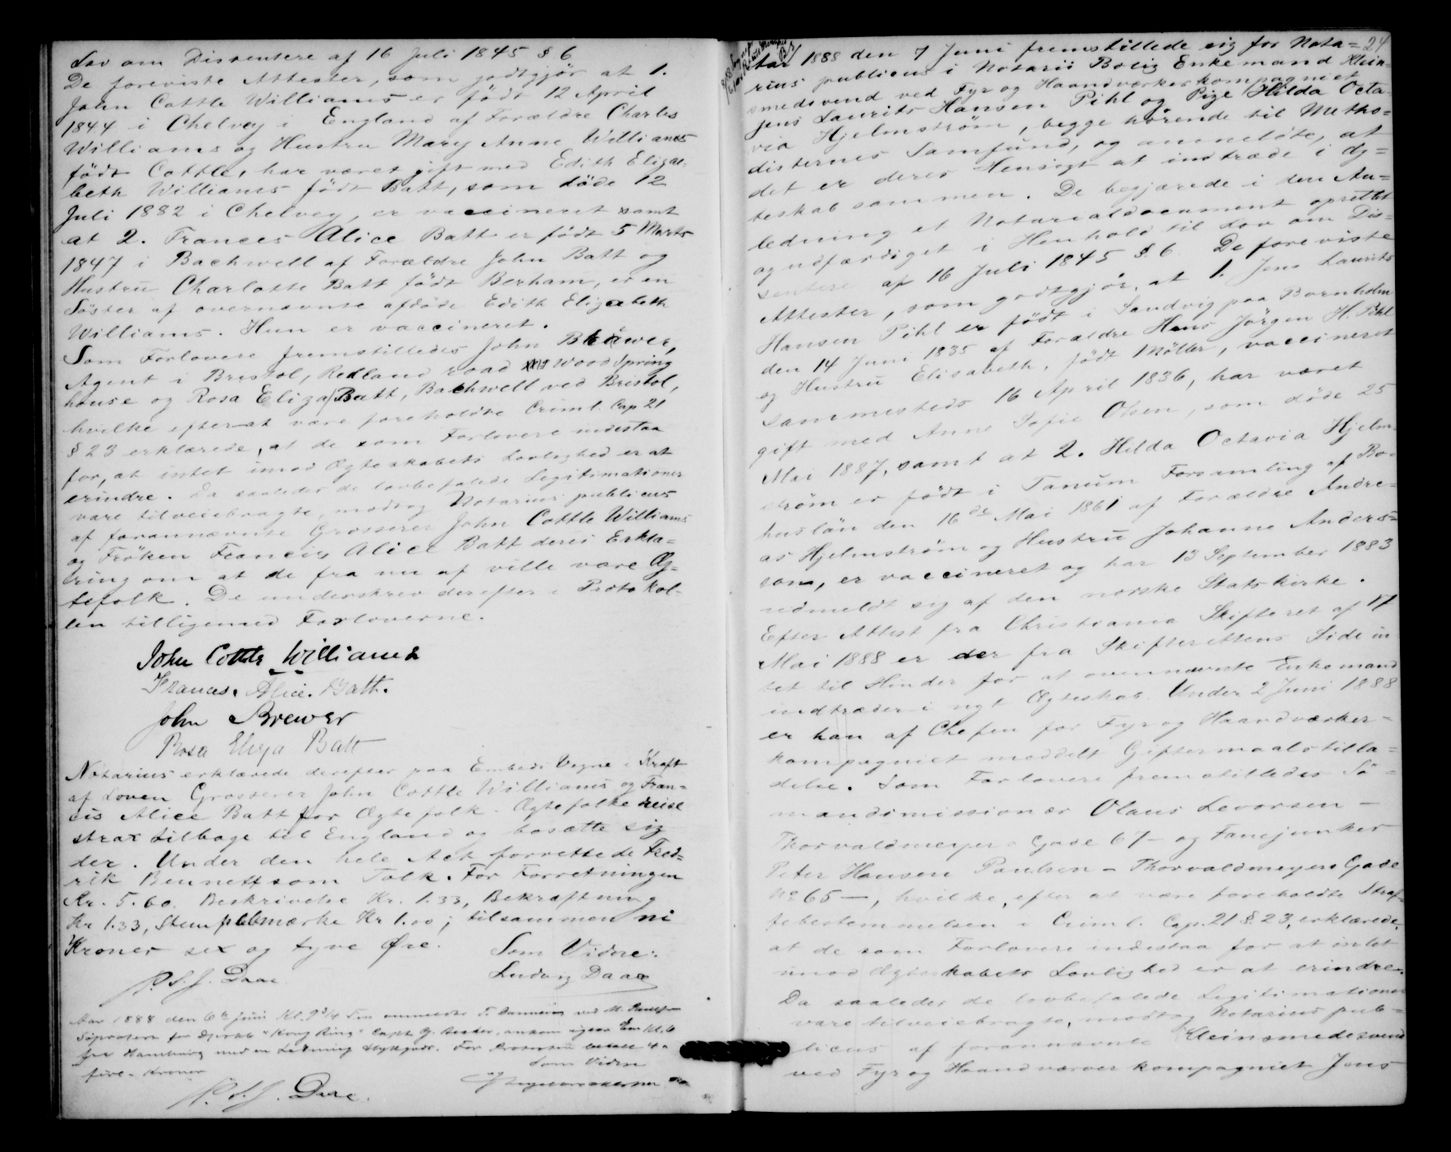 Lov om Dissentere af 16 Juli 1845 § 6
De foreviste Attester, som godtgjør at 1.
John Cottle Williams er født 12 April
1844 i Chelvey i England af Forældre Charles
Williams og Hustru Mary Anne Williams
født Cottle, har været gift med Edith Eliza=
beth Williams født Batt, som døde 12
Juli 1882 i Chelvey, er vaccineret samt
at 2. Frances Alice Batt er født 5 Marts
1847 i Backwell af Forældre John Batt og
Hustru Charlotte Batt født Berham, er en
Søster af ovennævnte afdøde Edith Elizabeth
Williams. Hun er vaccineret.
Som Forlovere fremstilledes John Brewer,
Agent i Bristol, Redland road Wood Spring
house og Rosa Eliza Batt, Backwell ved Bristol,
hvilke efter at være foreholdte Criml. Cap 21
§ 23 erklærede, at de som Forlovere indestaa
for, at intet imod Ægteskabets Lovlighed er at
erindre. Da saaledes de lovbefalede Legitimationer
vare tilveiebragte, modtog Notarius publicus
af forannævnte Grosserer John Cottle Williams
og Frøken Frances Alice Batt deres Erklæ=
ring om at de fra nu af ville være Æg=
tefolk. De underskrev derefter i Protokol-
len tilligemed Forloverne.
John Cottle Williams
Frances. Alice. Batt.
John Brewer
Rosa Eliza Batt
Notarius erklærede derefter paa Embeds Vegne i Kraft
af Loven Grosserer John Cottle Williams og Fran=
cis Alice Batt for Ægtefolk. Ægtefolke reise
strax tilbage til England og bosætte sig
der. Under den hele Act forrettede Fred=
rik Bennett som Tolk. For Forretningen
Kr. 5.60. Beskrivelse Kr. 1.33, Bekræftning
Kr 1.33, Stempelmærke Kr 1.00; tilsammen ni
Kroner sex og tyve Øre.
Som Vidne:
Ludvig Daae
P. S. J. Daae
Aar 1888 den 6te Juni Kl.
Søprotest for "Kong Ring" Capt.
fra Hamburg med en Ladning Stykgods. For Protesten
fire Kroner
Som Vidne
P. S. J. Daae.
24
Aar 1888 den 7 Juni fremstillede sig for Nota=
rius publicus i Notarii Bolig Enkemand Klein
smedsvend ved Fyr og Haandværkerkompagniet
Jens Laurits Hansen Pihl og Pige Hilda Octa
via Hjelmstrøm, begge hørende til Metho=
disternes Samfund, og anmeldte, at
det er deres Hensigt at indtræde i Æg=
teskab sammen. De begjærede i den An=
ledning et Notarialdocument oprettet
og udfærdiget i Henhold til Lov om Dis=
sentere af 16 Juli 1845 § 6. De foreviste
Attester, som godtgjør, at 1. Jens Laurits
Hansen Pihl er født i Sandvig paa Bornholm
den 14 Juni 1835 af Forældre Hans Jörgen H. Pihl
og Hustru Elisabeth, født Möller, vaccineret
sammesteds 16 April 1836, har været
gift med Anne Sofie Olsen, som døde 25
Mai 1887, samt at 2. Hilda Octavia Hjelm-
strøm er født i Tanum Forsamling af Bo=
huslän den 16de Mai 1861 af Forældre Andre=
as Hjelmstrøm og Hustru Johanne Anders=
son, er vaccineret og har 13 September 1883
udmeldt sig af den norske Statskirke.
Efter Attest fra Christiania Skifteret af 17
Mai 1888 er der fra Skifterettens Side in
tet til Hinder for at ovennævnte Enkemand
indtræder i nyt Ægteskab. Under 2 Juni 1888
er han af Chefen for Fyr og Haandværker-
kompagniet meddelt Giftermaalstilla=
delse. Som Forlovere fremstilledes Sø-
mandsmissionær Olaus Levorsen –
Thorvaldmeyers Gade 67 – og Fanejunker
Peter Hansen Paulsen – Thorvaldmeyers Gade
No 65 –, hvilke, efter at være foreholdte Straf-
febestemmelsen i Criml. Cap. 21 § 23, erklærede,
at de som Forlovere indestaa for at intet
imod Ægteskabets Lovlighed er at erindre.
Da saaledes de lovbefalede Legitimationer
vare tilveiebragte, modtog Notarius pub-
licus af forannævnte Kleinsmedsvend
ved Fyr og Haandværver kompagniet Jens